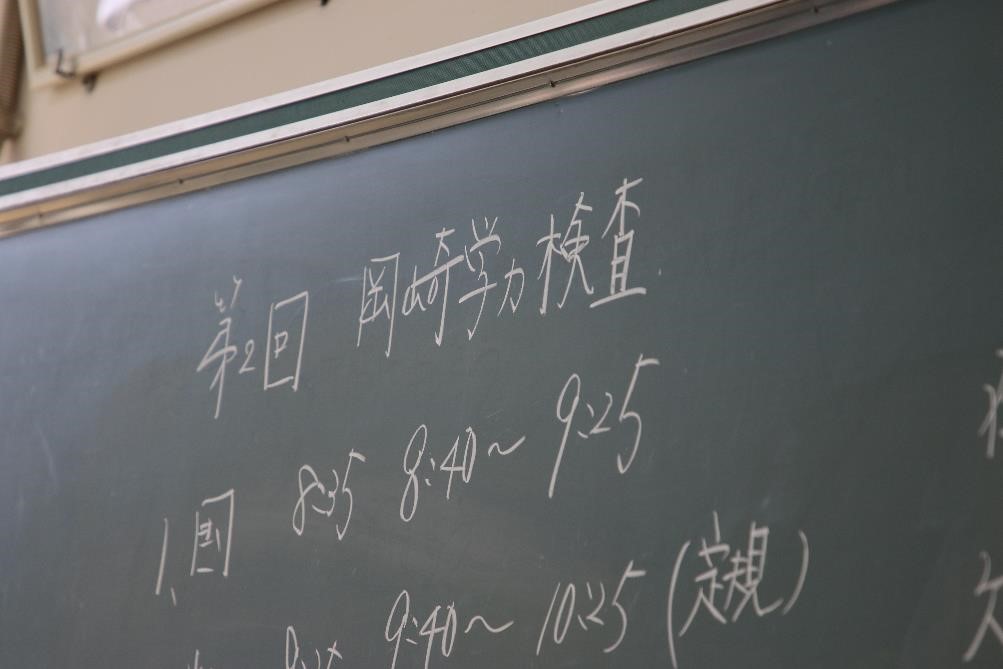 第2回 岡崎学力検査
1、国 8:35 8:40〜9:25
9:40〜10:25(定規)